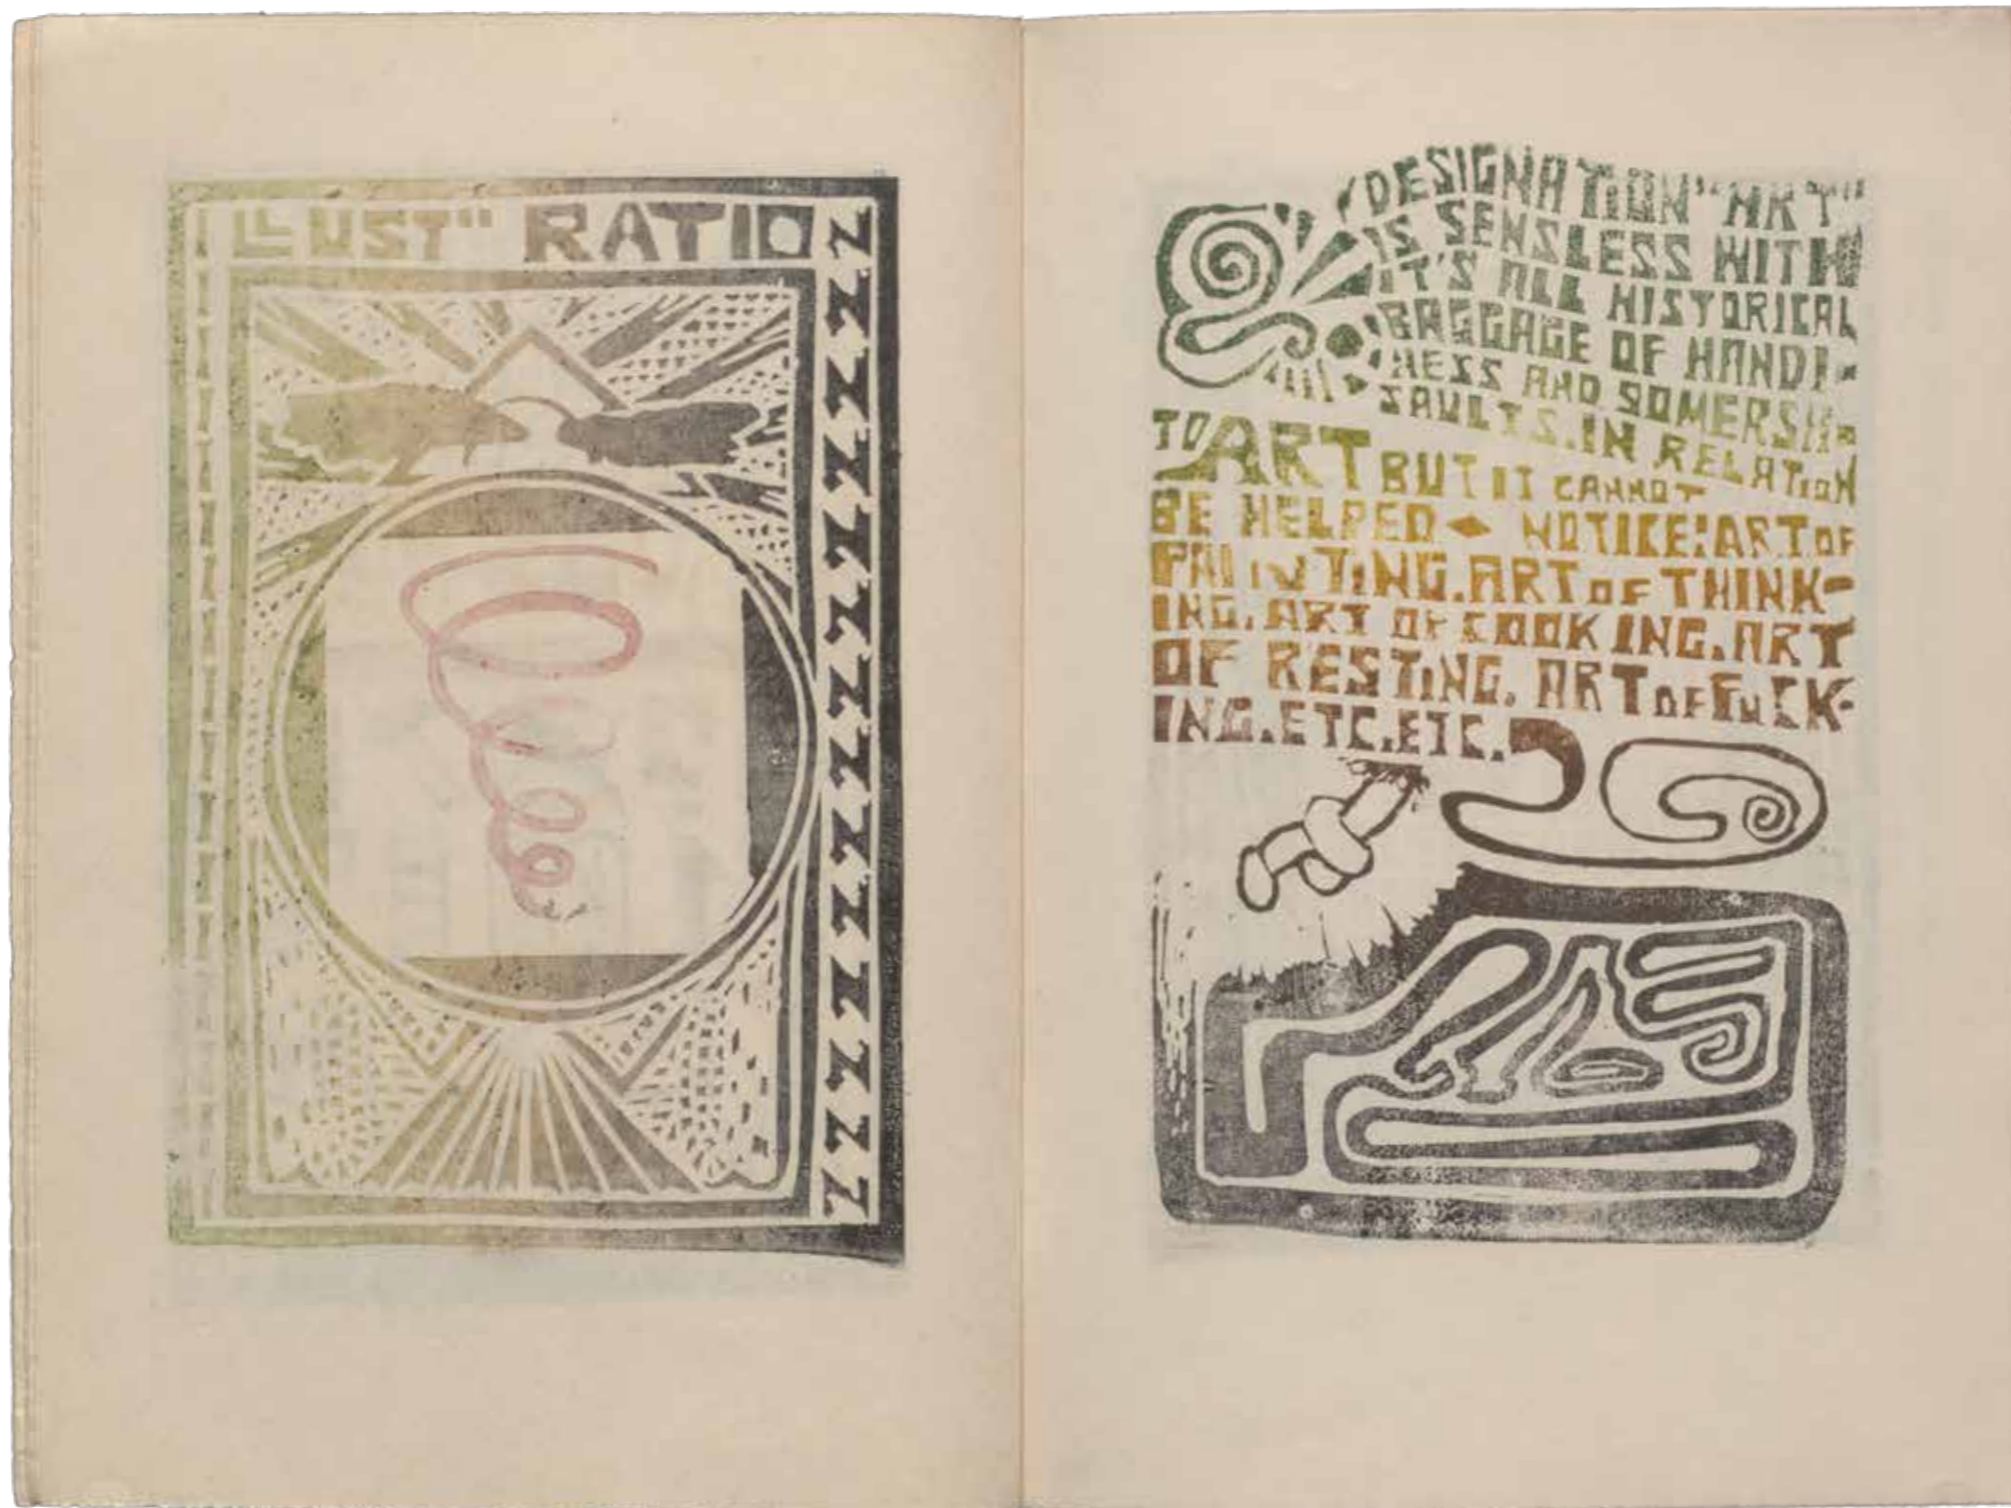 ILLUST" RATIO
DESIGNATION "ART"
IS SENSLESS WITH
IT'S ALL HISTORICAL
BAGGAGE OF HANDI-
NESS AND SOMERSH-
SAULTS. IN RELATION
TO ART BUT IT CANNOT
BE HELPED ◆ NOTICE: ART OF
PAINTING. ART OF THINK-
ING. ART OF COOKING. ART
OF RESTING. ART OF FUCK-
ING. ETC. ETC.